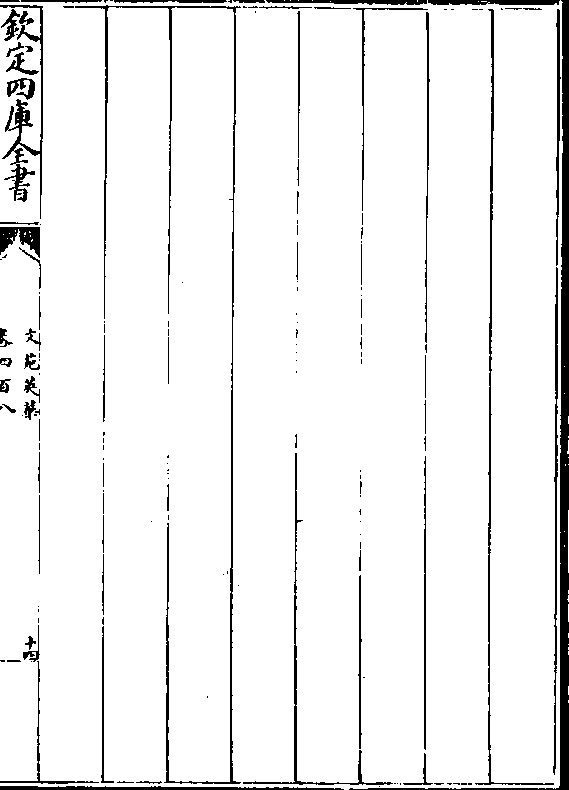 欽定四庫全書
文苑英華
卷四百八
十四